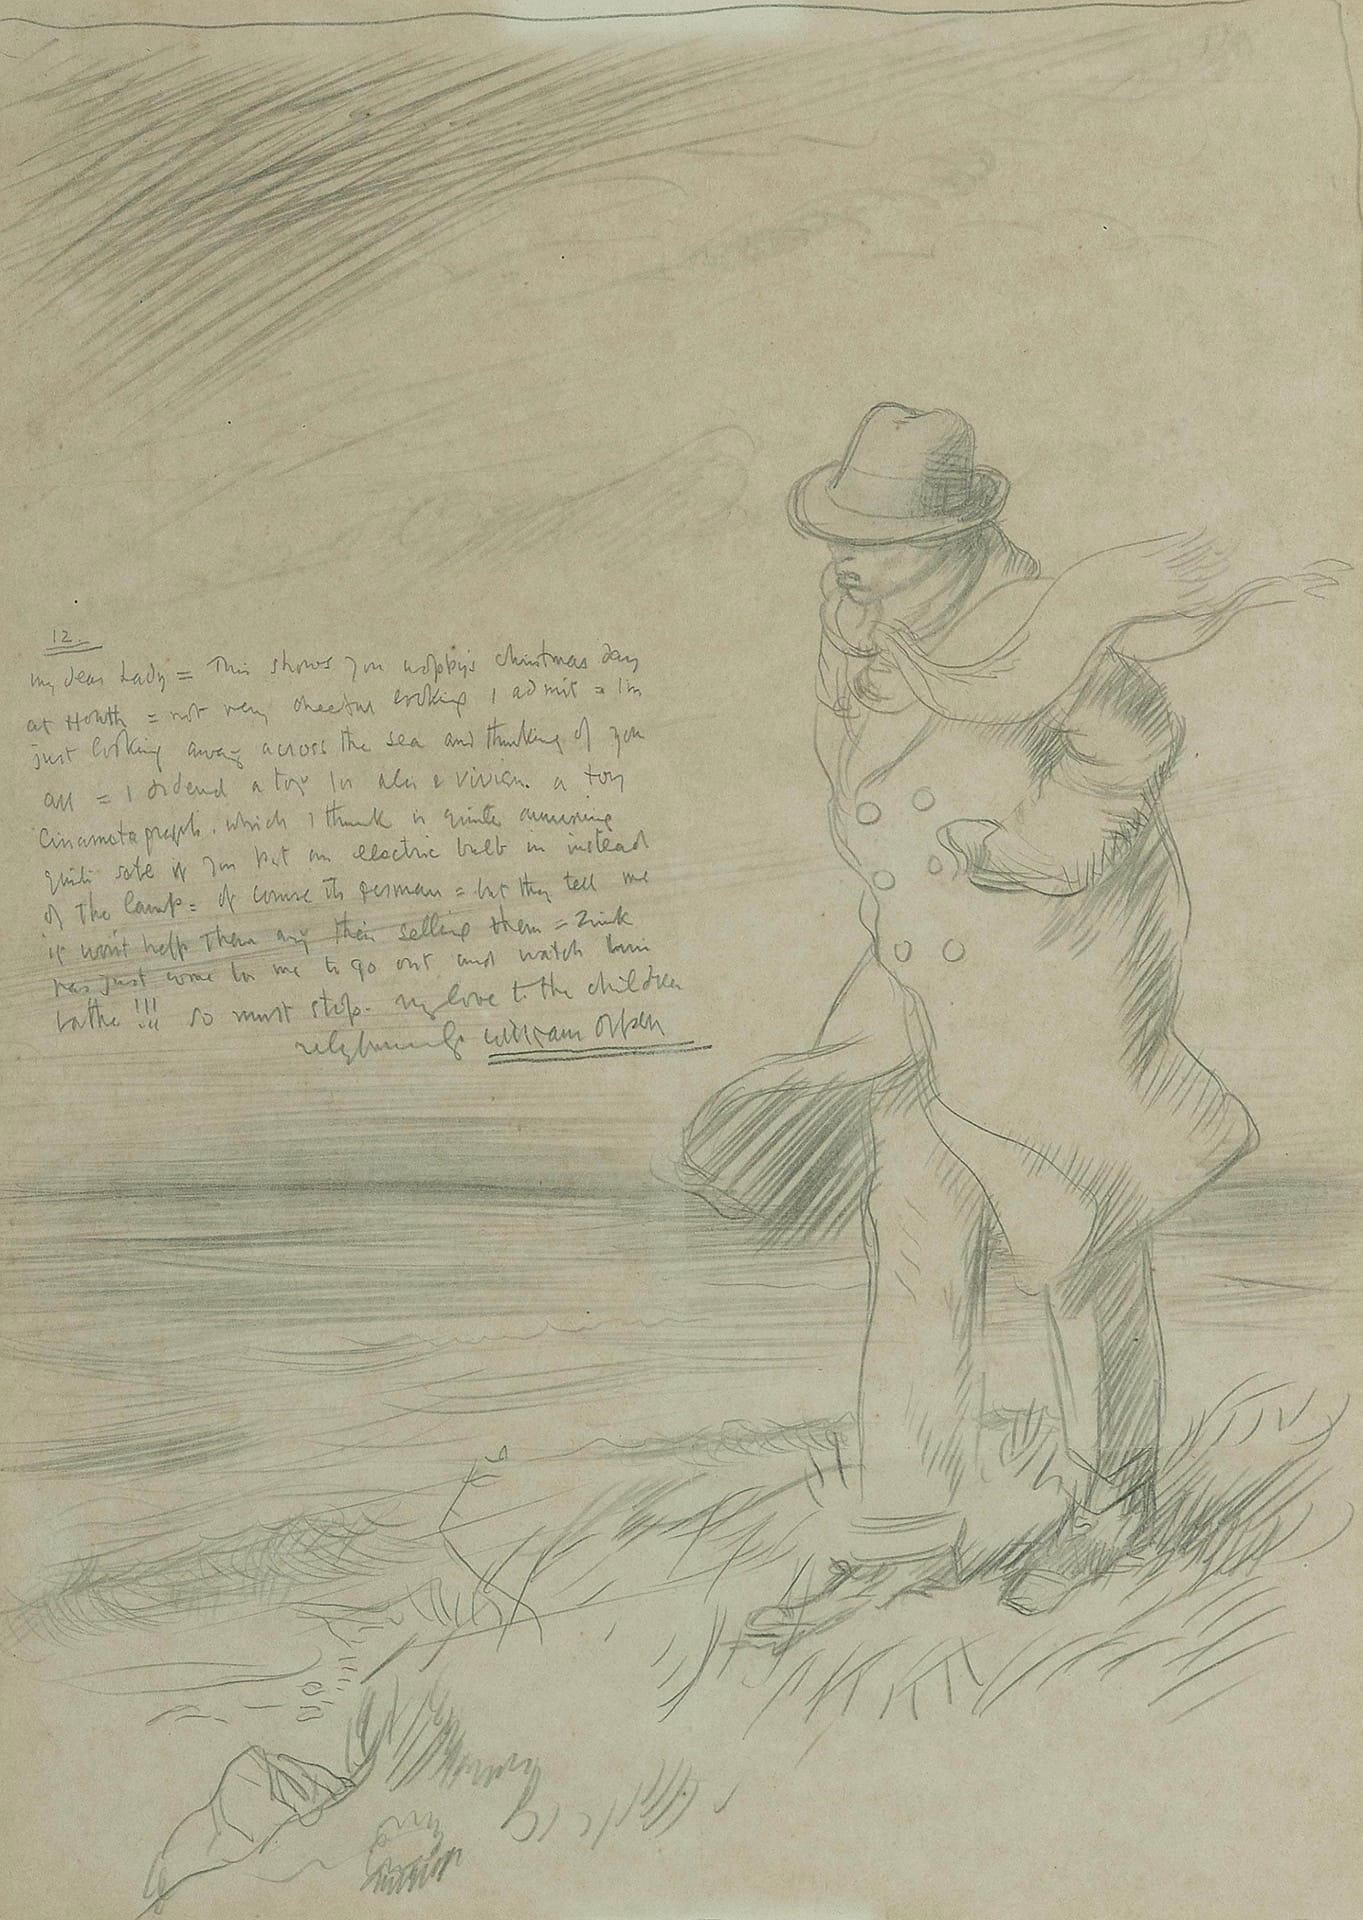 12.
my dear Lady = This shows you woppy's christmas day
at Howth = not very cheerful looking I admit = I'm
just looking away across the sea and thinking of you
all = I orderd a toy for alec & vivien. a toy
Cinametograph. which I think is quite amusing
quite safe if you put an electric bulb in instead
of the lamp = of course its german = but they tell me
it won't help them any their selling them =
has just come for me to go out and watch him
bathe !!! so must stop. my love to the children
William Orpen